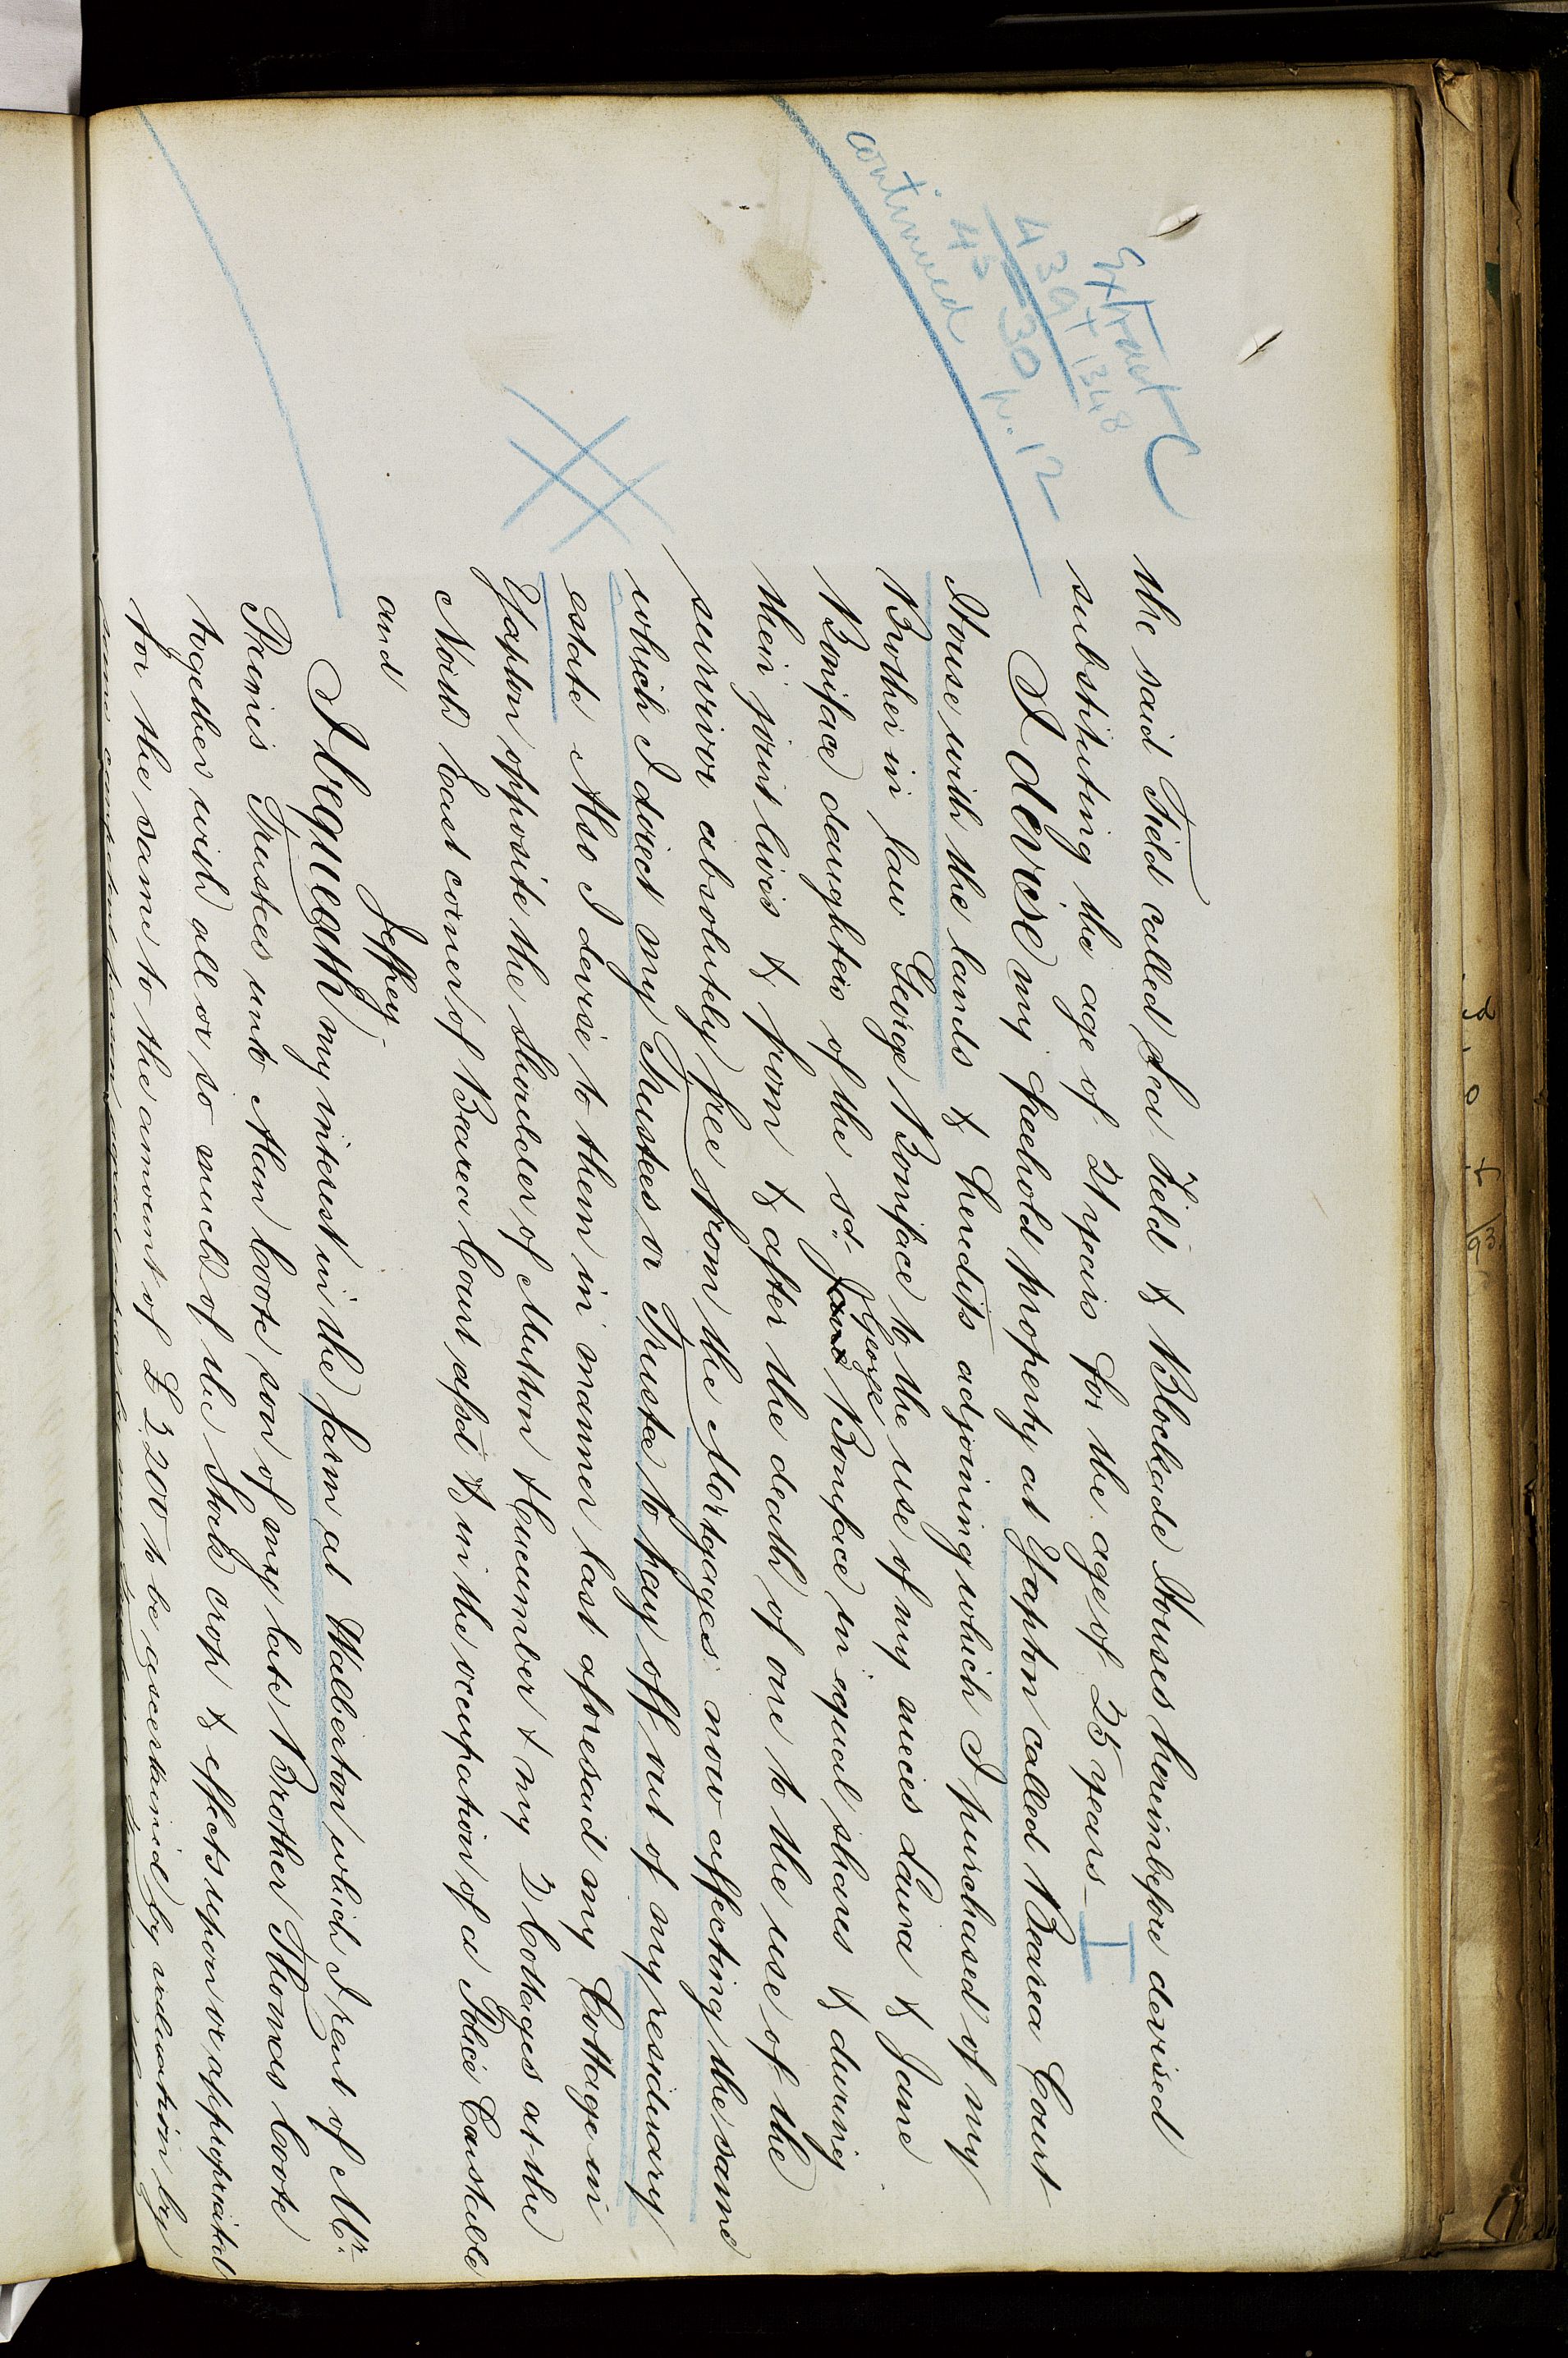 the said Field called Sea Field & Blockade Houses hereinbefore devised
substituting the age of 21 years for the age of 25 years
I devise my freehold property at Yapton called Bearea Court
House with the lands & heredits adjoining which I purchased of my
Brother in law George Boniface to the use of my nieces Laura & Jane
Boniface daughters of the sd. Jane George Boniface in equal shares & during
their joint lives & from & after the death of one to the use of the
survivor absolutely free from the Mortgages now affecting the same
which I direct my Trustees or Trustee to pay off out of my residuary
estate Also I devise to them in manner last aforesaid my Cottage in
Yapton opposite the Shoulder of Mutton & Cucumber & my 2 Cottages at the
North East corner of Bearea Court afsd & in the occupation of a Police Constable
and Jeffrey
I bequeath my interest in the farm at Walberton which I rent of Mr.
Premis Trustees unto Alan Coote son of my late Brother Thomas Coote
together with all or so much of the Stock crop & effects upon or appropriated
for the same to the amount of £2200 to be ascertained by valuation by
extract
439 + 1348
45 30 p. 12
continued